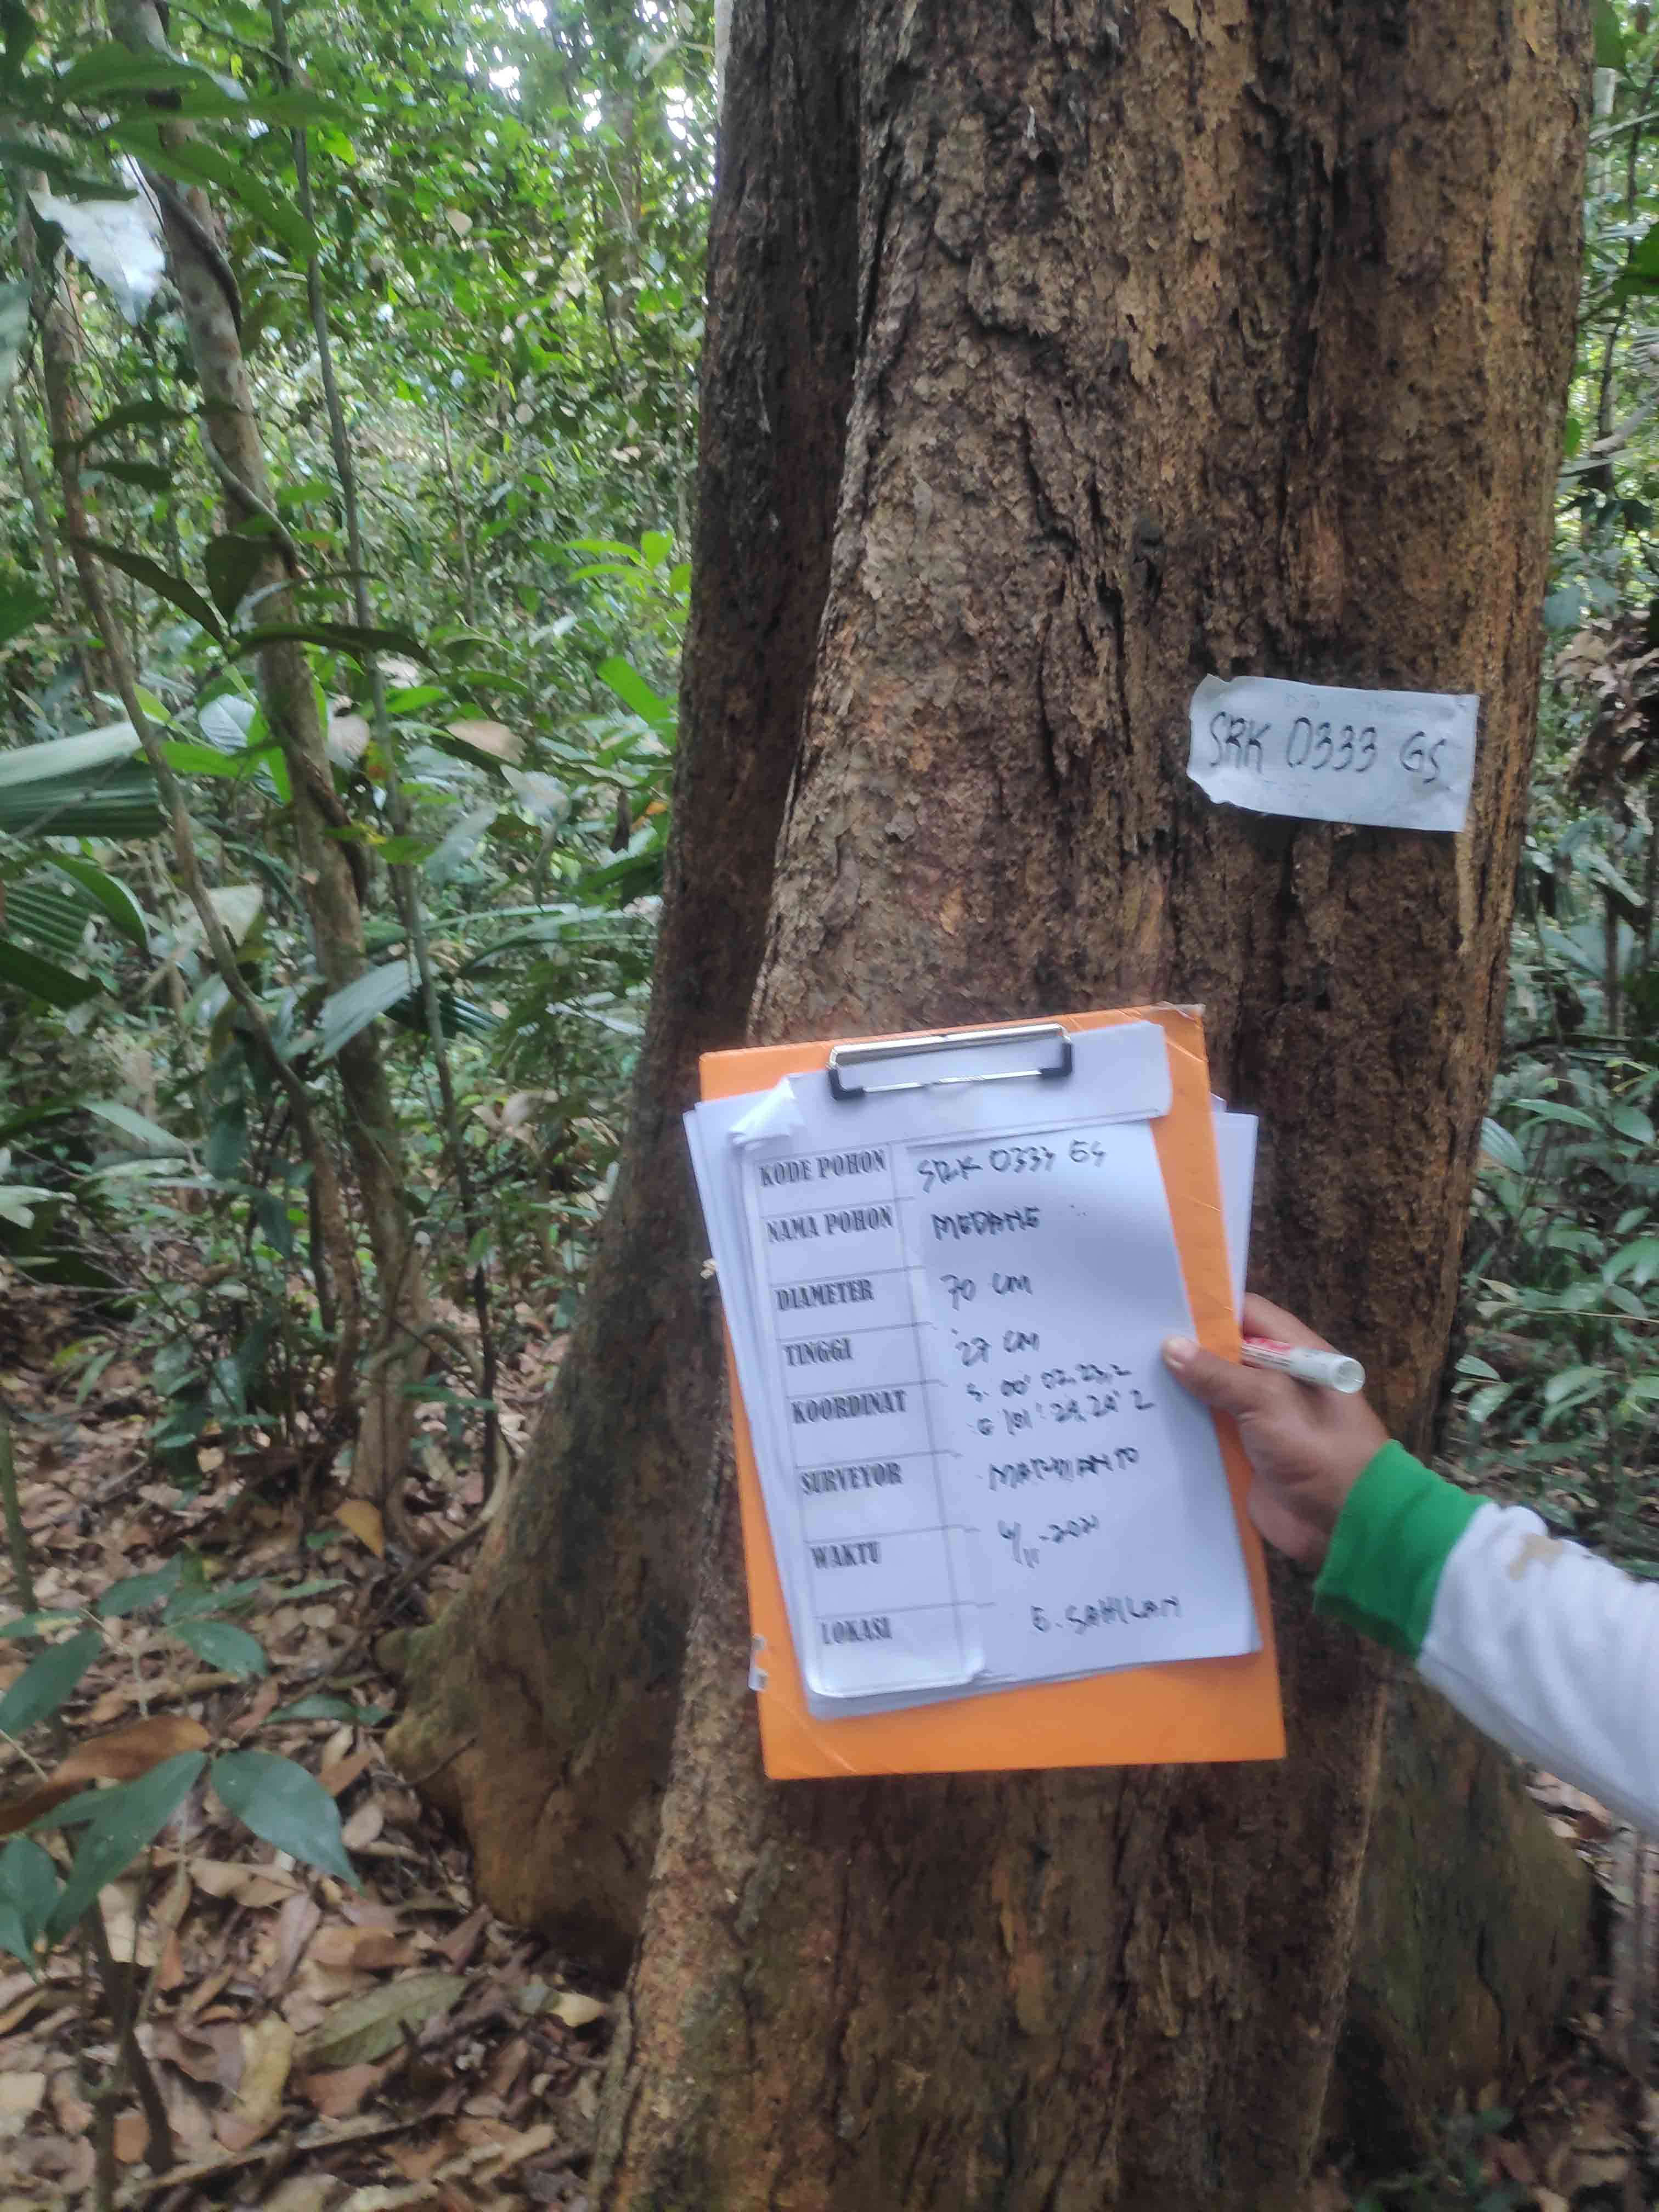 SRK 0333 GS
KODE POHON SRK 0333 GS
NAMA POHON MEDANG
DIAMETER 70 CM
TINGGI 27 CM
KOORDINAT S. 00° 02. 23,2
101° 29, 24" 2
SURVEYOR
WAKTU 4/11-2021
LOKASI G. SAHILAN